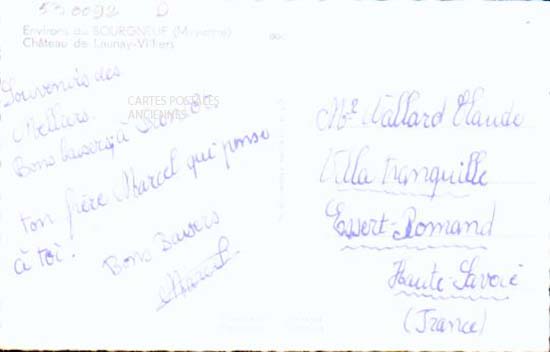 530092 D
Environs du BOURGNEUF (Mayenne)
Château de Launay-Villiers
Souvenirs des
Bons baisers à
ton frère Marcel qui pense
à toi.
Bons Baisers
Marcel
CARTES POSTALES
ANCIENNES
Mr Vallard Claude
Villa tranquille
Essert-Romand
Haute-Savoie
(France)